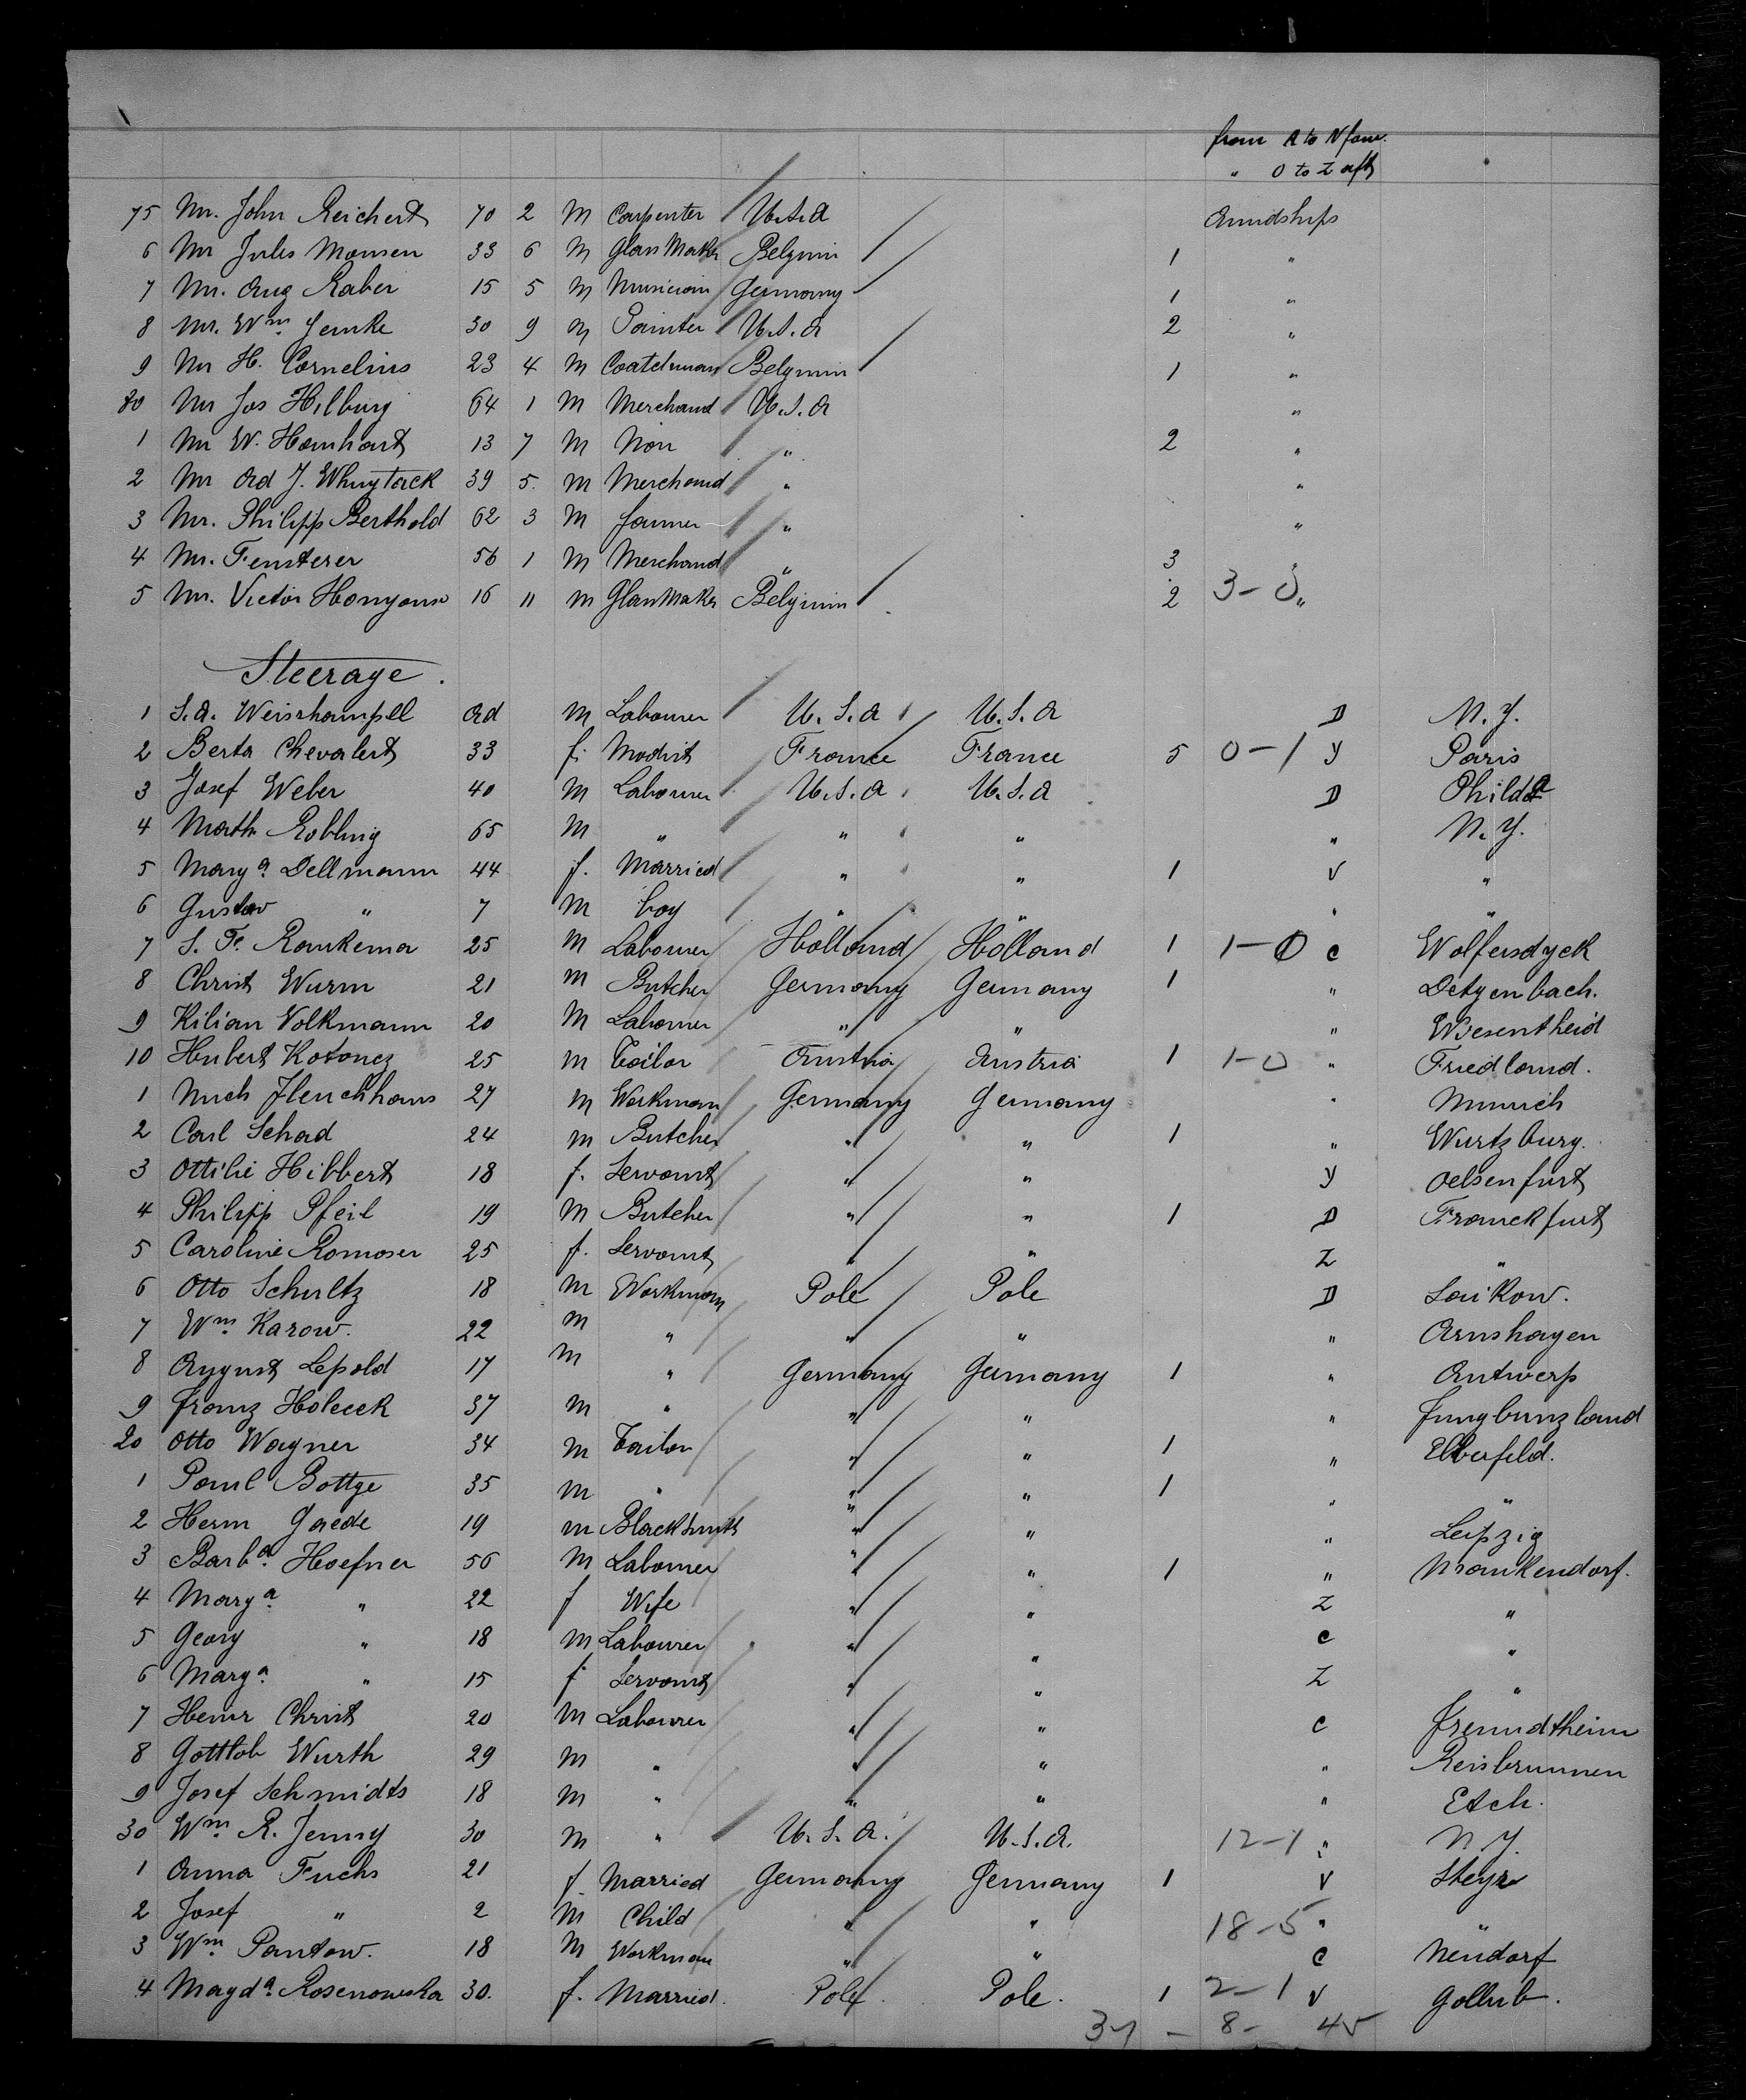 from A to N forw.
" O to Z aft
75 Mr. John Reichert 70 2 M Carpenter U.S.A Amidships
6 Mr Jules Monsen 33 6 M Glas Maker Belgium 1 "
7 Mr. Aug Raber 15 5 M Musician Germany 1 "
8 Mr. Wm Jemke 30 9 M Painter U.S.A 2 "
9 Mr H. Cornelius 23 4 M Belgium 1 "
80 Mr Jos Hilburg 64 1 M Merchand U.S.A "
1 Mr W. Hamhart 13 7 M Non " 2 "
2 Mr Ad J. Whuytack 39 5 M Merchand " "
3 Mr. Philipp Berthold 62 3 M farmer " "
4 Mr. Fensterer 56 1 M Merchand " 3 "
5 Mr. Victor 16 11 M Glas Maker Belgium 2 3-0 "
Steerage.
1 S.A. Weisshampell Ad M Labourer U.S.A U.S.A D N.Y.
2 Berta Chevalert 33 f. Modist France France 5 0-1 Y Paris
3 Josef Weber 40 M Labourer U.S.A U.S.A D Philda
4 Math Robling 65 M " " " " N.Y.
5 Marya Dellmann 44 f. Married " " 1 V "
6 Gustav " 7 M boy " " " "
7 S. Fe Rankema 25 M Labourer Holland Holland 1 1-0 C Wolfersdyck
8 Christ Wurm 21 M Butcher Germany Germany 1 " Detgenbach.
9 Kilian Volkmann 20 M Labourer " " " Wiesentheid
10 Hubert Kotoncz 25 M Tailor Austria Austria 1 1-0 " Friedland.
1 Mich 27 M Workman Germany Germany " Munich
2 Carl Schad 24 M Butcher " " 1 " Wurtzburg.
3 Ottilie Hibbert 18 f. Servant " " Y Oelsenfurt
4 Philipp Pfeil 19 M Butcher " " 1 D Franckfurt
5 Caroline Romoser 25 f. Servant " " Z "
6 Otto Schultz 18 M Workman Pole Pole D Saikow.
7 Wm Karow. 22 M " " " " Arnshagen
8 August Lepold 17 M " Germany Germany 1 " Antwerp
9 Franz Holecek 37 M " " " " Jungbunzland
20 Otto Wagner 34 M Tailor " " 1 " Elberfeld.
1 Paul Bottge 35 M " " " 1 " "
2 Herm Gaede 19 M Blacksmith " " " Leipzig
3 Barba Hoefner 56 M Labourer " " 1 " Mrankendorf.
4 Marga " 22 f Wife " " Z "
5 Georg " 18 M Labourer " " C "
6 Marga " 15 f Servant " " Z "
7 Heinr Christ 20 M Labourer " " C Freundtheim
8 Gottlob Wurth 29 M " " " " Reisbrunnen
9 Josef Schmidts 18 M " " " " Etch.
30 Wm R. Jenny 30 M " U.S.A. U.S.A. 12-1 " N.Y.
1 Anna Fuchs 21 f. Married Germany Germany 1 V Steyr
2 Josef " 2 M Child " " 18-5 " "
3 Wm Pantow. 18 M Workman " " C Neudorf
4 Magda Rosenowska 30. f. Married. Pole Pole. 1 2-1 V Gollub.
37 - 8- 45